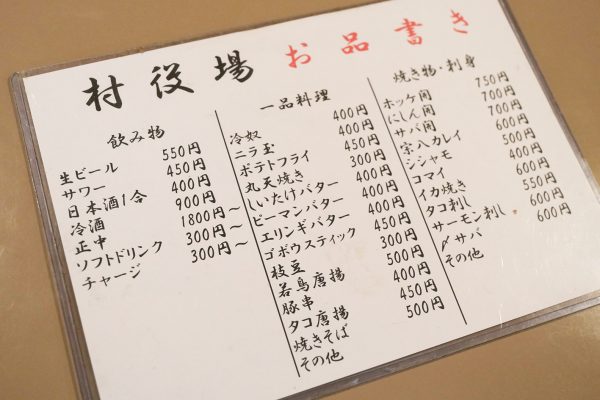 村役場 お品書き
飲み物
生ビール 550円
サワー 450円
日本酒1合 400円
冷酒 900円
正中 1800円～
ソフトドリンク 300円～
チャージ 300円～
一品料理
冷奴 400円
ニラ玉 400円
ポテトフライ 450円
丸天焼き 300円
しいたけバター 400円
ピーマンバター 400円
エリンギバター 400円
ゴボウスティック 450円
枝豆 300円
若鳥唐揚 500円
豚串 400円
タコ唐揚 450円
焼きそば 500円
その他
焼き物・刺身
ホッケ開 750円
にしん開 700円
サバ開 700円
宗八カレイ 600円
シシャモ 500円
コマイ 400円
イカ焼き 600円
タコ刺し 550円
サーモン刺し 600円
〆サバ 600円
その他